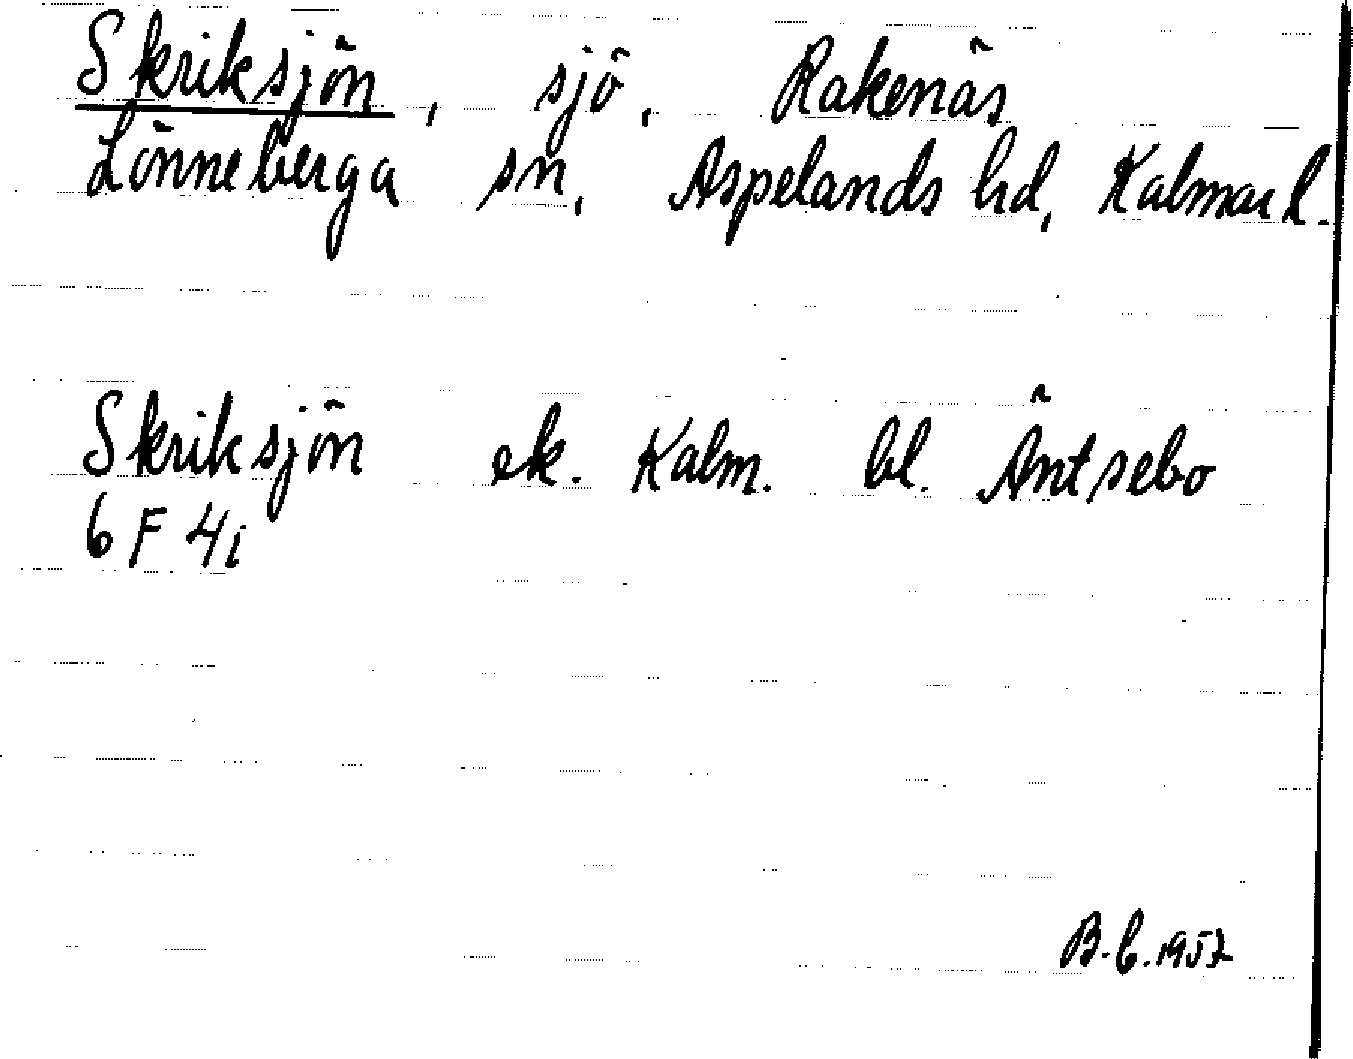 Skriksjön, sjö, Rakenäs
Lönneberga sn, Aspelands hd, Kalmar l.
Skriksjön ek. Kalm. bl. Äntsebo
6 F 4i
B. b. 1952